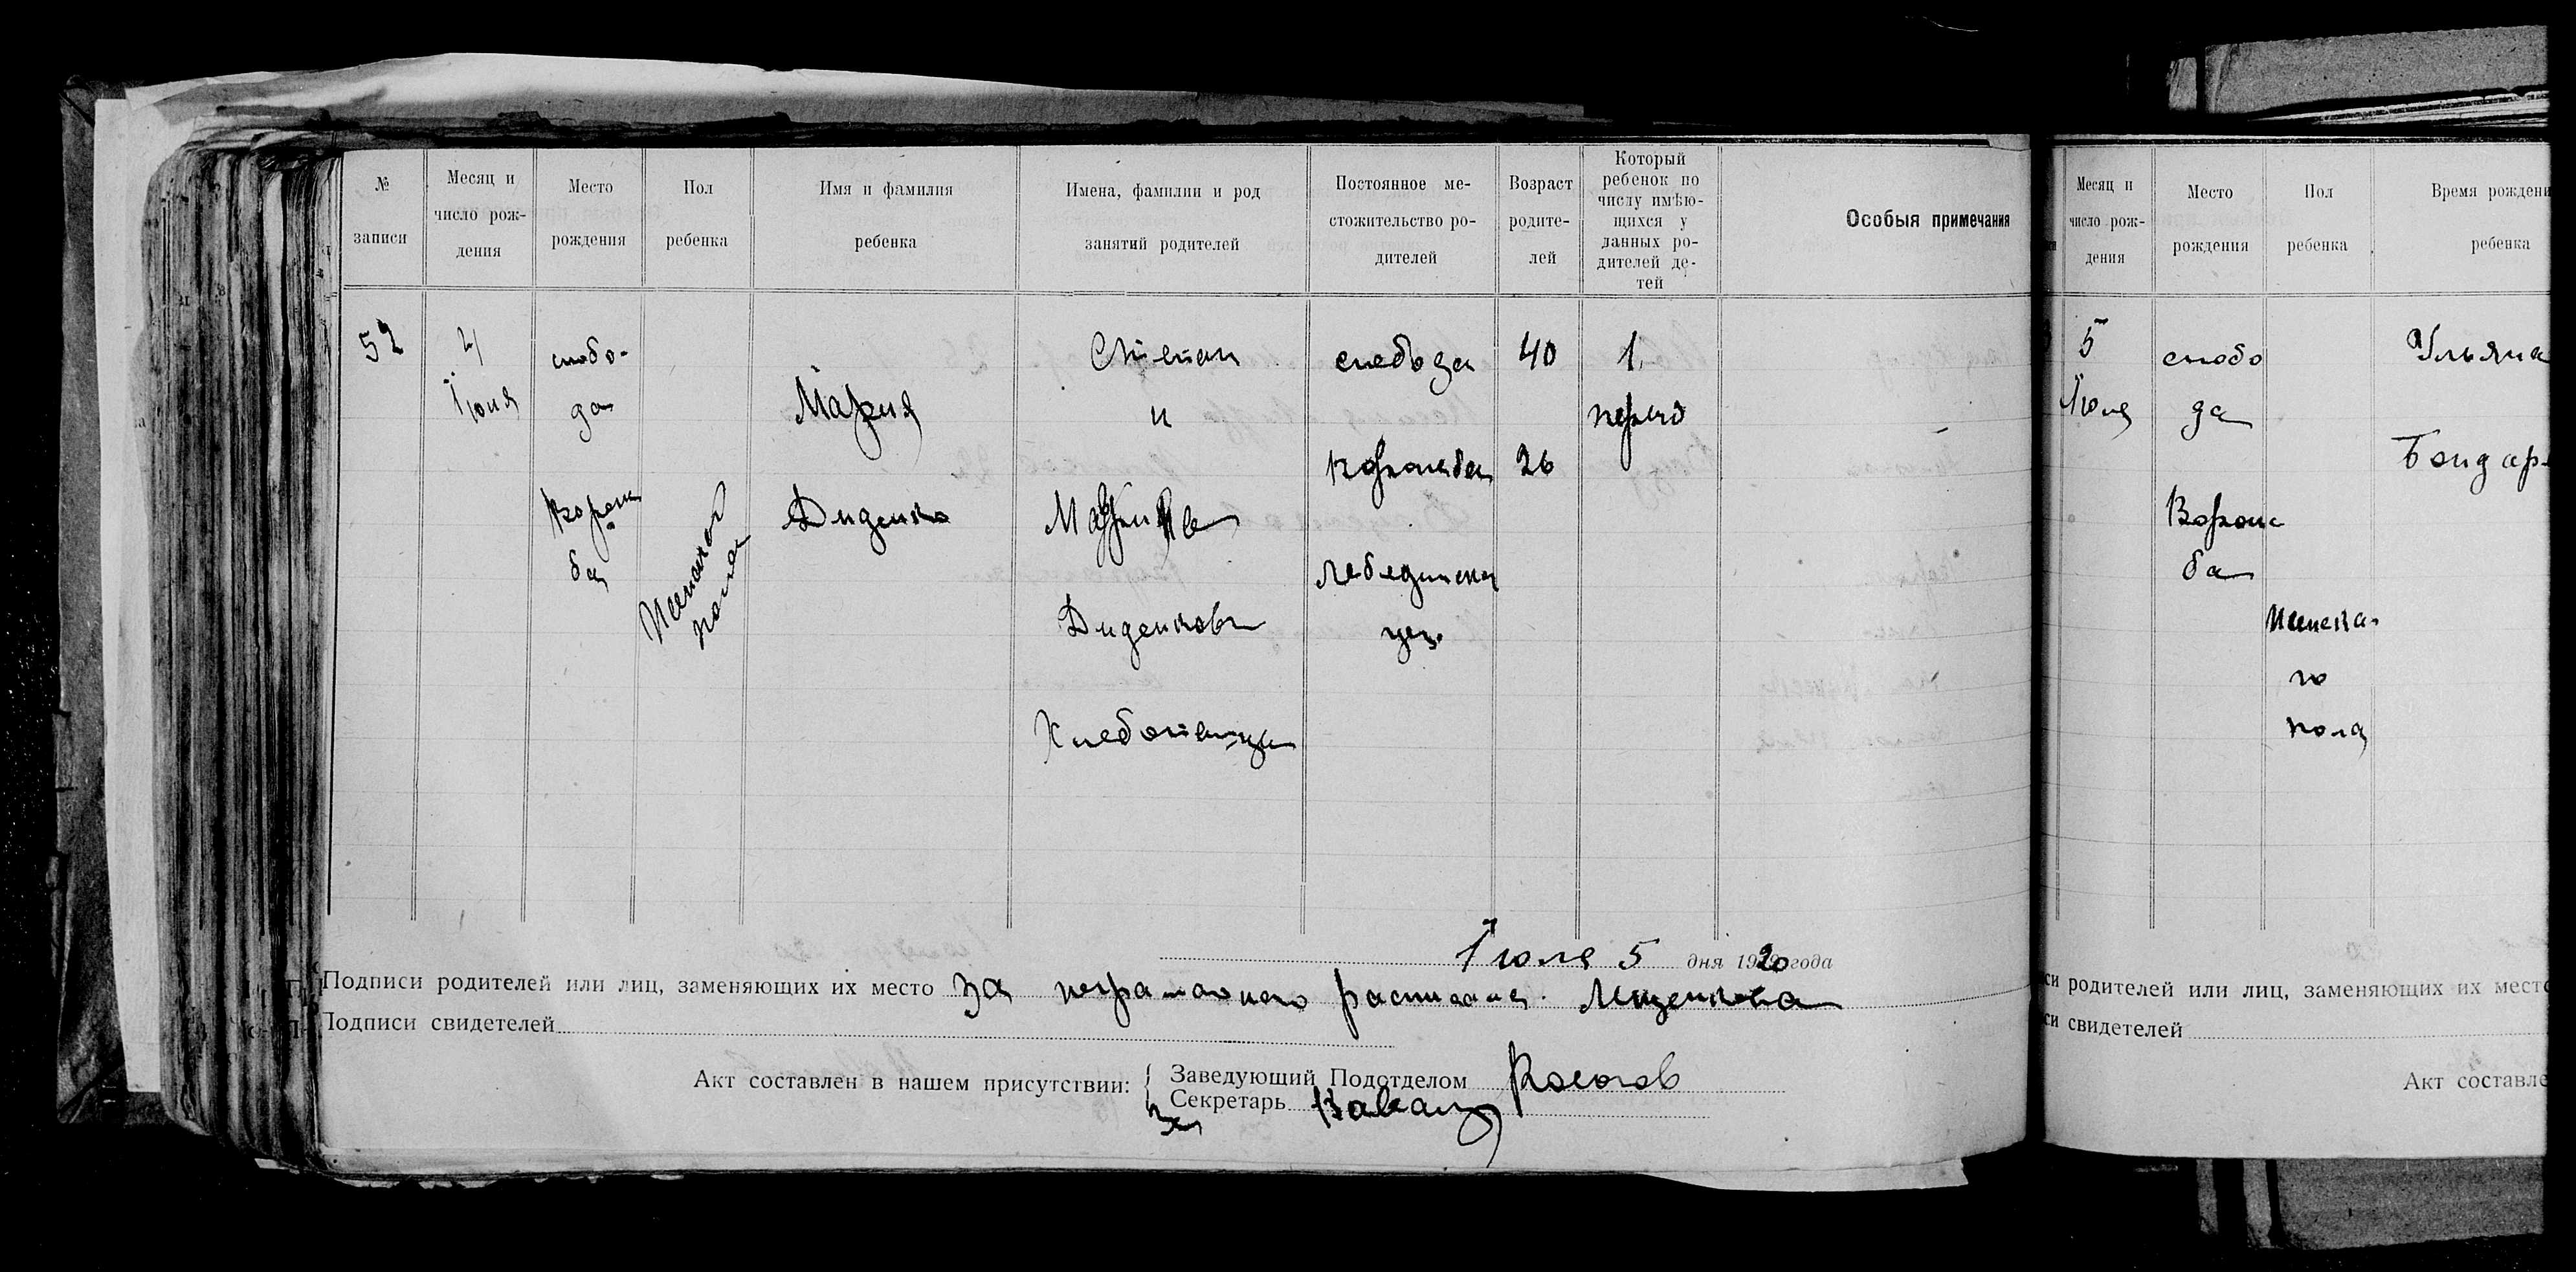 №
записи
Месяц и
число рож-
дения
Место
рождения
Пол
ребенка
Имя и фамилия
ребенка
Имена, фамилии и род
занятий родителей
Постоянное ме-
стожительство ро-
дителей
Возраст
родите-
лей
Который
ребенок по
числу имѣю-
щихся у
данных ро-
дителей де-
тей
Особыя примечания
52
4
Июля
слобо-
да
Ворож
ба
Женского
пола
Мария
Диденко
Степан
и
Диденковы
Хлебопашцы
слобода
Ворожба
Лебединска
уез.
40
26
1
первый
Июля 5 дня 1920 года
Подписи родителей или лиц, заменяющих их место За неграмотного расписался Лещенкова
Подписи свидетелей
Акт составлен в нашем присутствии:
Заведующий Подотделом
Секретарь
Месяц и
число рож-
дения
Место
рождения
Пол
ребенка
Время рождени
ребенка
5
Июля
слобо
да
Ворож
ба
Женска-
го
пола
Ульяна
Бондар-
си родителей или лиц, заменяющих их место
си свидетелей
Акт составле